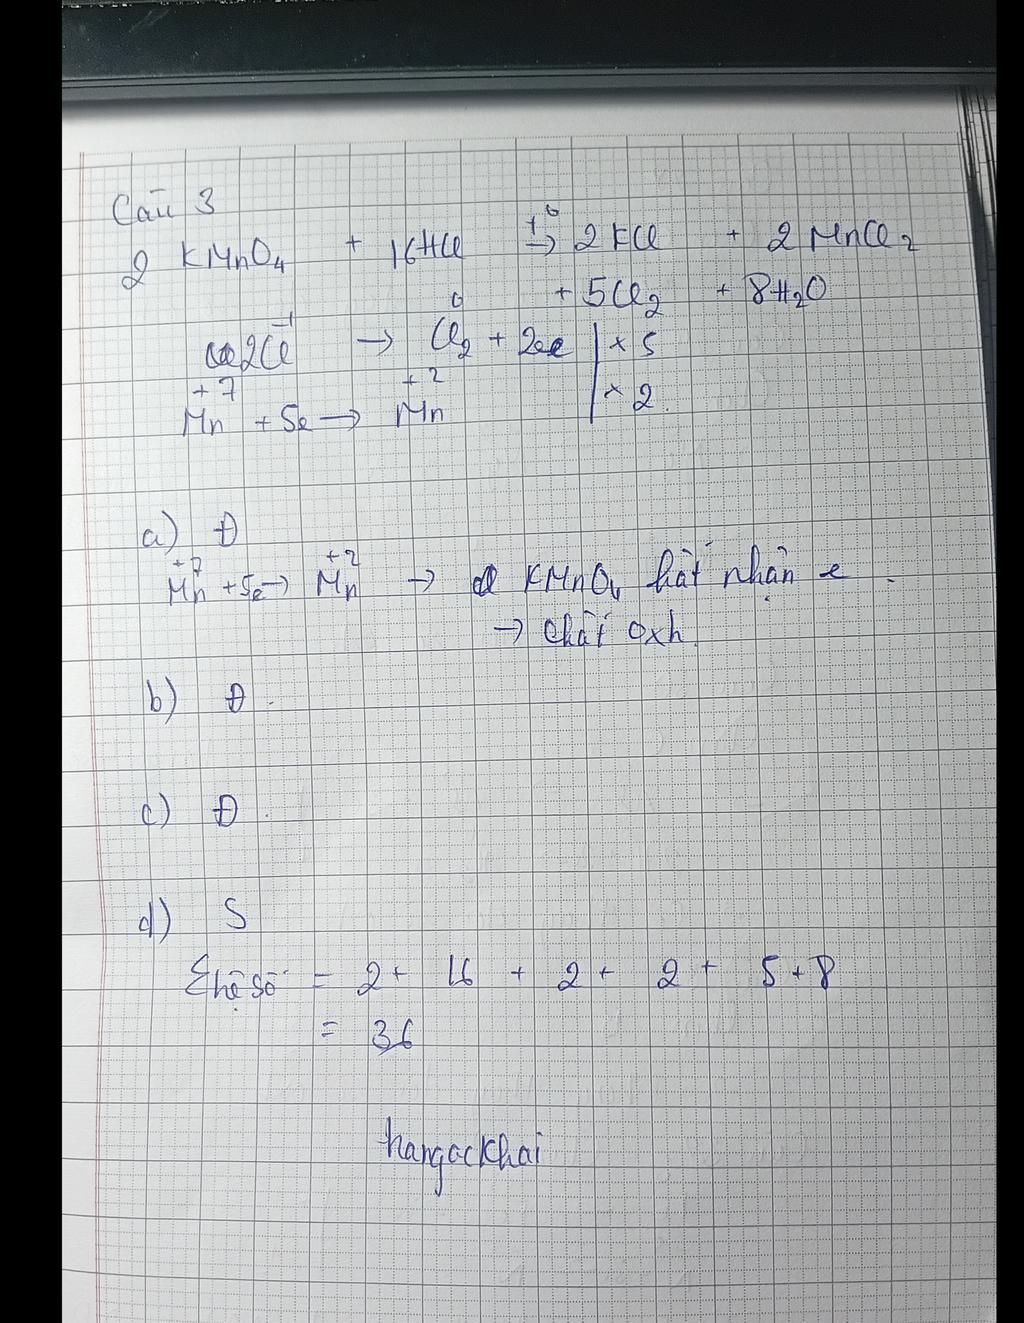 Câu 3
2 KMnO4 + 16HCl →(t°) 2 KCl + 2 MnCl2
+ 5Cl2 + 8H2O
2Cl⁻¹ → Cl2⁰ + 2e | × 5
Mn⁺⁷ + 5e → Mn⁺² | × 2
a) Đ
Mn⁺⁷ + 5e → Mn⁺² → KMnO4 chất nhận e
→ chất oxh
b) Đ.
c) Đ.
d) S
Σhệ số = 2 + 16 + 2 + 2 + 5 + 8
= 36
hangockhai